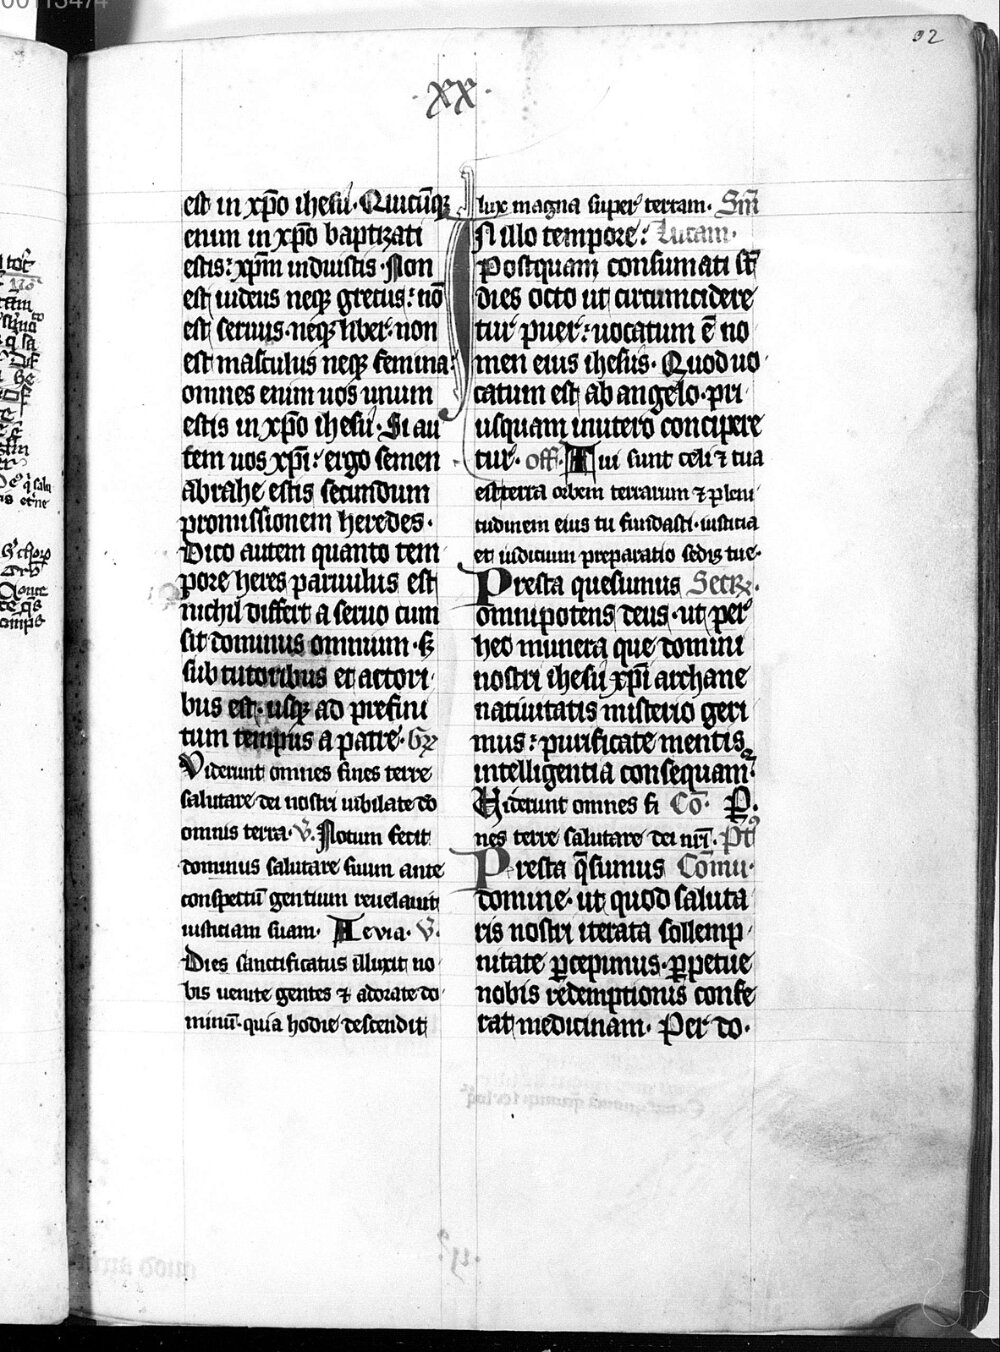 32
·xx·
est in xp̄o ihesu· Quicūqꝫ
enim in xp̄o baptizati
estis: xp̄m induistis· Non
est iudeus neqꝫ grecus: nō
est seruus· neqꝫ liber· non
est masculus neqꝫ femina·
omnes enim uos unum
estis in xp̄o ihesu· Si au
tem uos xp̄i: ergo semen
abrahe estis secundum
promissionem heredes·
Dico autem quanto tem
pore heres paruulus est
nichil differt a seruo cum
sit dominus omnium· sꝫ
sub tutoribus et actori
bus est· usqꝫ ad prefini
tum tempus a patre· Gr̄
Viderunt omnes fines terre
salutare dei nostri iubilate dō
omnis terra· V̄· Notum fecit
dominus salutare suum ante
conspectū gentium reuelauit
iusticiam suam· Aeuia· V̄·
Dies sanctificatus illuxit no
bis uenite gentes ⁊ adorate do
minū· quia hodie descendit
lux magna super terram· Sm̄
In illo tempore: Lucam·
Postquam consumati st̄
dies octo ut circumcidere
tur puer: uocatum ē no
men eius ihesus· Quod uo
catum est ab angelo· pri
usquam in utero concipere
tur· off· Tui sunt celi ⁊ tua
est terra orbem terrarum ⁊ pleni
tudinem eius tu fundasti· iusticia
et iudicium preparatio sedis tue·
Presta quesumus Secrꝫ·
omnipotens deus· ut per
hec munera que domini
nostri ihesu xp̄i archane
natiuitatis misterio geri
mus: purificate mentis
intelligentia consequam᷑·
Viderunt omnes fi Cō· P̄·
nes terre salutare dei nr̄i·
Presta q̄sumus Com̄u·
domine· ut quod saluta
ris nostri iterata sollemp
nitate ꝑcepimus· ꝑpetue
nobis redemptionis confe
rat medicinam· Per do·